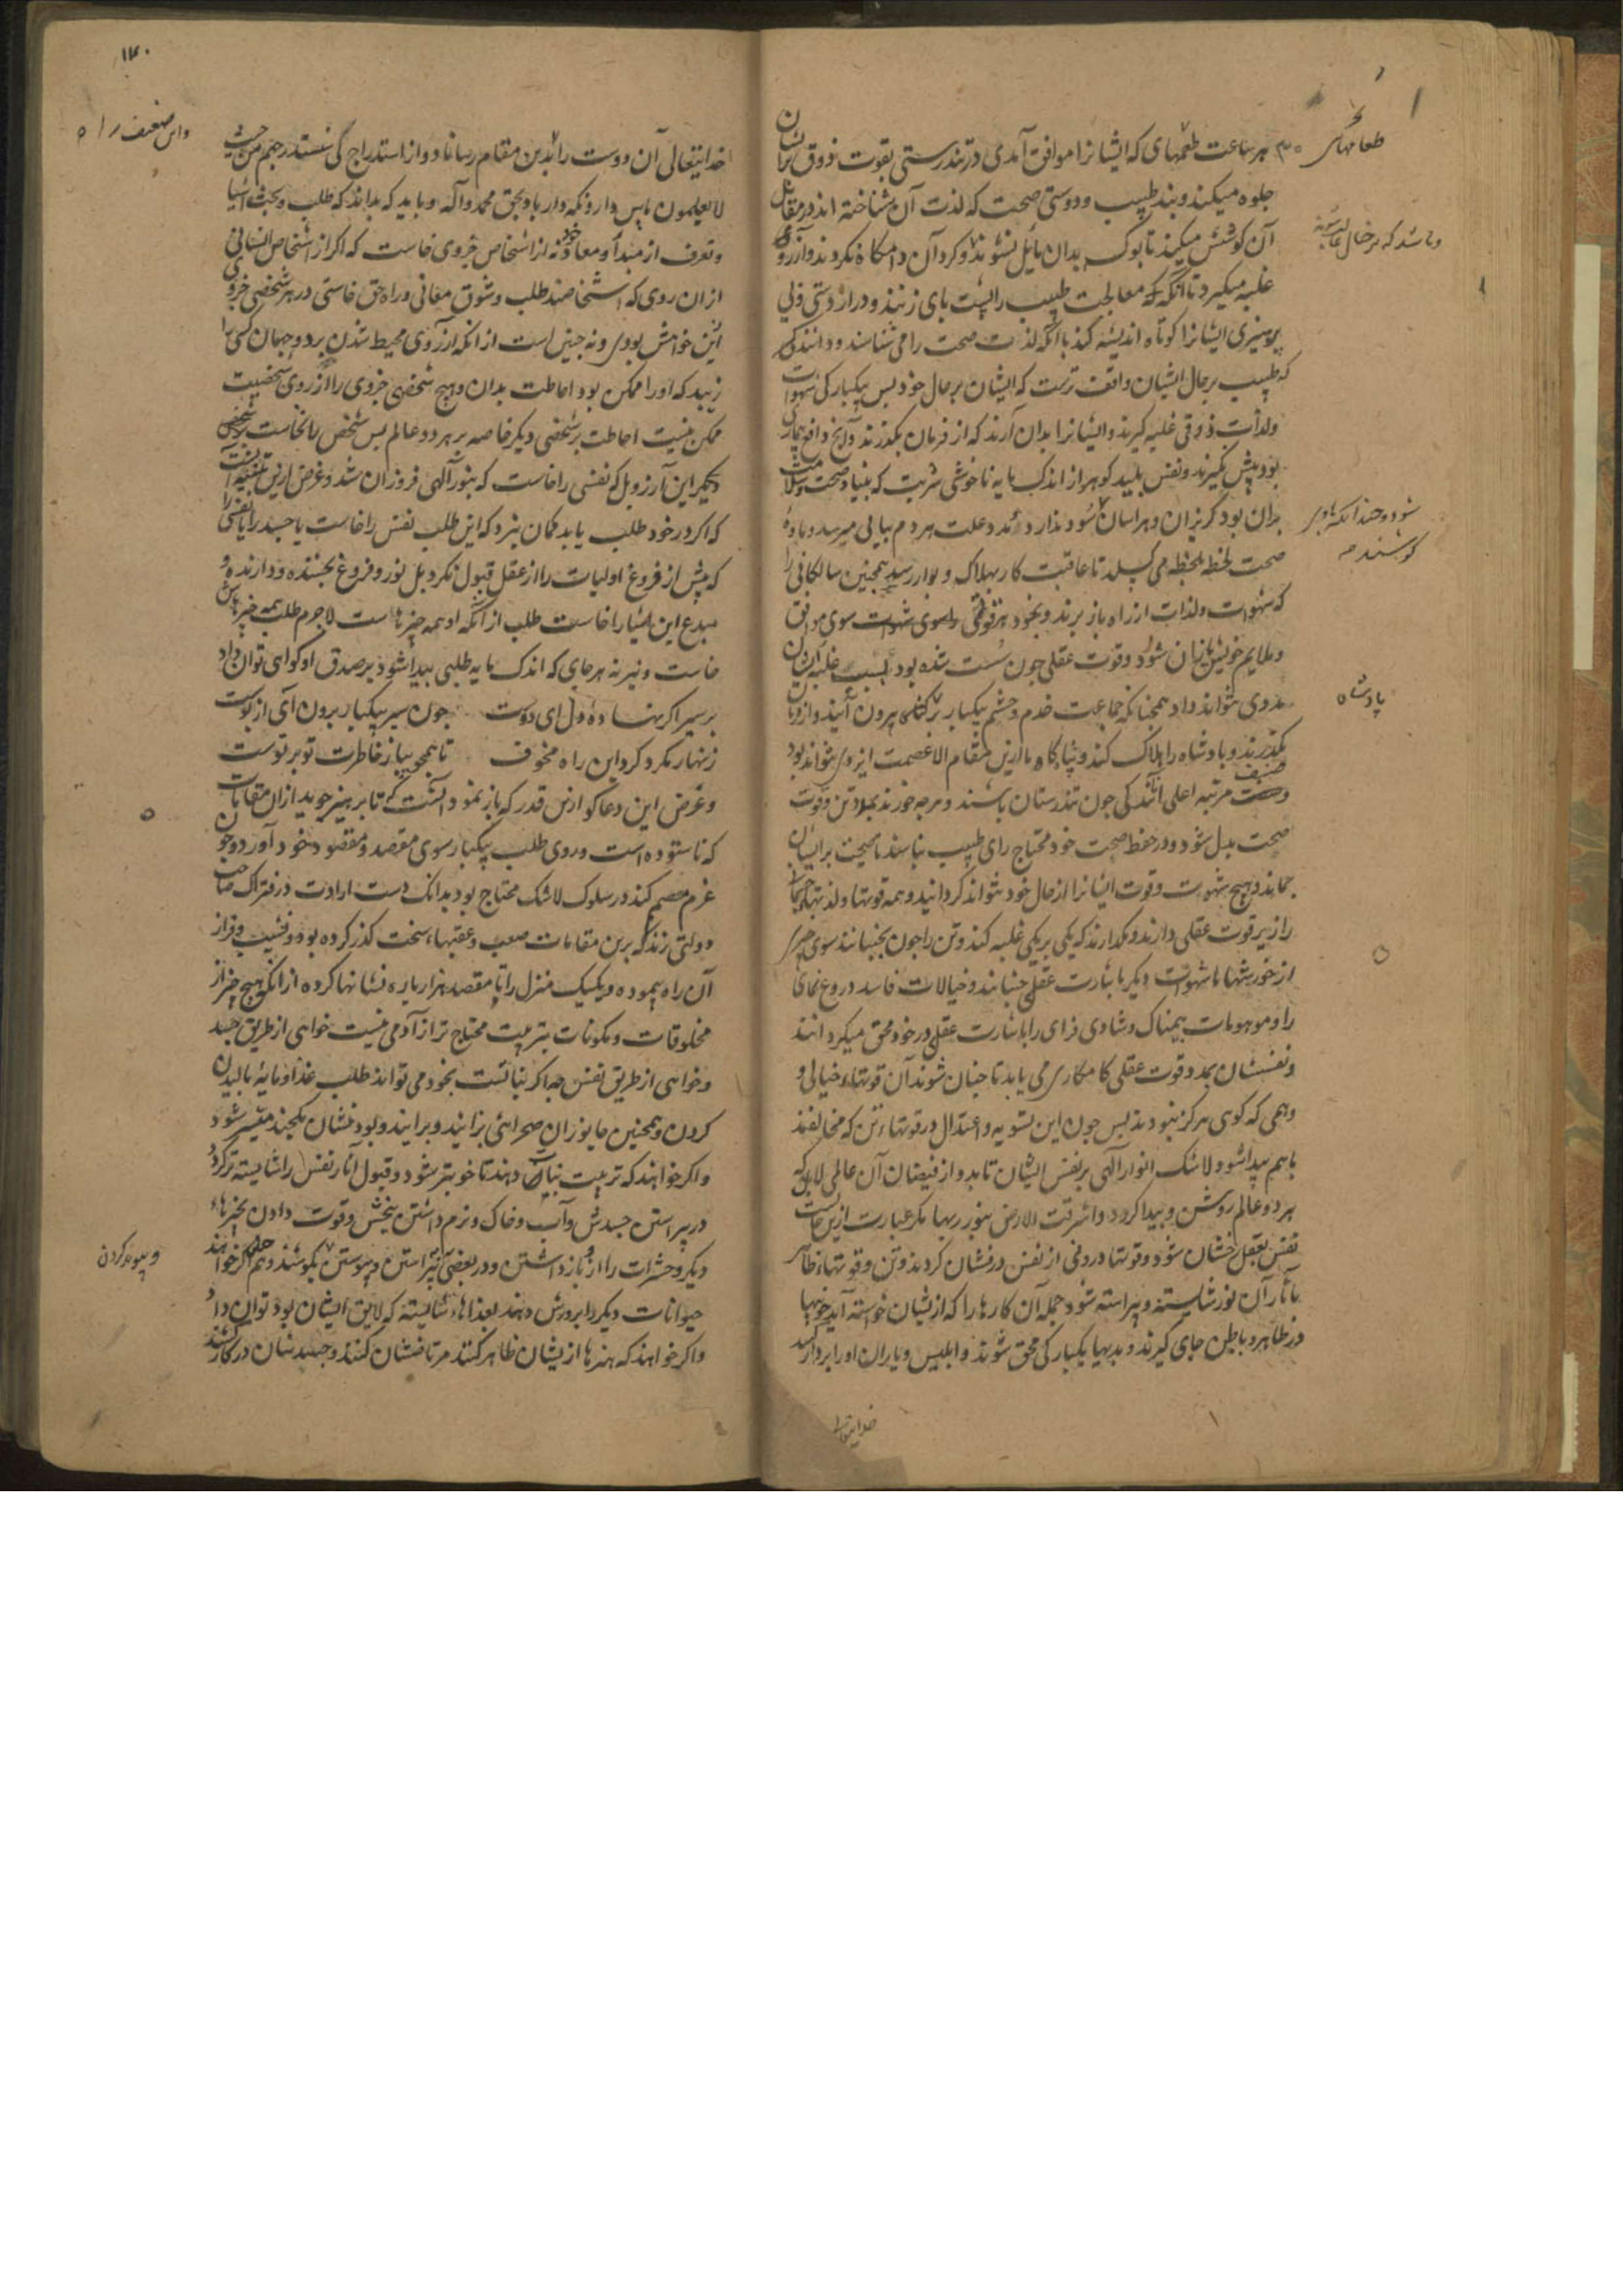 هر ساعت طعمهای که ایشانرا موافق آمدی در تندرستی بقوت ذوق برایشان
جلوه میکند و بند طبیب و دوستی صحت که لذت آن شناخته اند در مقابل
آن کوشش میکند تا بوک بدان مایل نشوند و کرد آن دامکاه نکردند و آرزو
غلبه میکیرد تا آنکه که معالجت طبیب را پشت پای زنند و دراز دستی و بی
پرهیزی ایشانرا کوتاه اندیشه کند با آنکه لذت صحت را می شناسند و دانند
که طبیب بر حال ایشان واقف ترست که ایشان بر حال خود پس بیکبارکی شهوات
ولذات ذوقی غلبه کیرند و ایشانرا بدان آرند که از فرمان بکذرند و آنچ دافع بیماری
بود پیش نکیرند و نفس پلید کوهر از اندک مایه ناخوشی شربت که بنیاد صحت و سلامت
بران بود کریزان و هراسان شود
صحت لحظه لحظه می کسلد تا عاقبت کار بهلاک و بوار رسد همچنین سالکانی را
که شهوات ولذات از راه باز برند و بخود هر قوتی سوی شهوات سوی موافق
و ملایم خویش یازان شود و قوت عقلی چون سست شده بود بسبب غلبه ایشان
مددی نتواند داد همچنانکه جماعت خدم و حشم بیکبار بر ملکی بیرون آیند و از فرمان
بکذرند و پادشاه را هلاک کنند و پناه کاه ما ازین مقام الا عصمت ایزدی نتواند بود
و صنف مرتبه اعلی آنند کی چون تندرستان باشند و هرچه خورند بمدد تن و قوت
صحت بدل شود و در حفظ صحت خود محتاج رای طبیب نباشند تا صحت بر ایشان
بماند و هیچ شهوت و قوت ایشانرا از حال خود نتواند کردانید و همه قوتها و لذتها
را زیر قوت عقلی دارند و نکذارند که یکی بر یکی غلبه کند و تن را چون بجنبانند سوی چیزی
از خورشها یا شهوات دیکر باشارت عقلی جنبانند و خیالات فاسد دروغ نمای
را و موهومات بیمناک و شادی فزای را باشارت عقلی در خود محق میکردانند
و نفسشان بمدد قوت عقلی کامکاری می یابد تا چنان شوند آن قوتهاء خیالی و
وهمی که کوی هرکز نبودند پس چون این تسویه و اعتدال در قوتهاء تن که مخالفند
با هم پیدا شود و لاشک انوار آلهی بر نفس ایشان تابد و از فیضان آن عالمی لابل که
هر دو عالم روشن و پیدا کردد و اشرقت الارض بنور ربها مکر عبارت ازین حالست
نفس بعقل رخشان شود و قوتها درونی از نفس درفشان کردند و تن و قوتهاء ظاهر
بآثار آن نور شایسته و پیراسته شود جمله آن کارها را که از یشان خواسته آید خوبیها
در ظاهر و باطن جای کیرند و بدیها یکبارکی محق شوند و ابلیس و یاران او را بردار کشند
طعامهای
و باشد که بر خیال
کوشند
پادشاه
خدایتعالی
۱۴۰
خدایتعالی آن دوست را بدین مقام رساناد و از استدراج کی سنستدرجهم من حیث
لا یعلمون بپاس دار و نکه داراد بحق محمد و آله و باید که بداند که طلب و بحث اشیا
و تعرف از مبدأ و معاد خود نه از اشخاص جزوی خاست که اکر از اشخاص انسانی
از ان روی که اشخاصند طلب و شوق معانی و راه حق خاستی در هر شخصی جزوی
این خواهش بودی و نه چنین است از آنکه آرزوی محیط شدن بر دو جهان کسی را
زیبد که او را ممکن بود احاطت بدان و هیچ شخصی جزوی را از روی شخصیت
ممکن نیست احاطت بر شخصی دیکر خاصه بر هر دو عالم پس شخص
دیکر این آرزو بل که نفسی را خاست که بنور آلهی فروزان شد و غرض ازین تنبیه آنست
که اکر در خود طلب یابد کمان نبرد که این طلب نفس را خاست یا جسد را یا نفسی را
که پیش از فروغ اولیات را از عقل قبول نکرد بل نور و فروغ بخشنده و دارنده و
مبدع این اشیا را خاست طلب از آنکه او همه چیزهاست لاجرم طلب همه چیز
خاست و نیر نه هر جای که اندک مایه طلبی پیدا شود بر صدق او کواهی توان داد
بر سیر اکر نهاده دل ای دوست چون سیر بیکبار برون آی از پوست
زنهار مکرد کرد این راه مخوف تا همچو پیاز خاطرت تو بر توست
و غرض این دعاکو ازین قدر که باز نمود آنست کی تا بر پرهیز جوید ازان مقامات
که ناستوده است و روی طلب بیکبار سوی مقصد و مقصود خود آورد و چون
عزم مصمم کند در سلوک لاشک محتاج بود بدانک دست ارادت در فتراک صاحب
دولتی زند که برین مقامات صعب و عقبهاء سخت کذر کرده بود و نشیب و فراز
آن راه پیموده و یک یک منزل را تا مقصد هزار باره نشانها کرده از آنکه هیچ چیز از
مخلوقات و مکونات بتربیت محتاج تر از آدمی نیست خواهی از طریق جسد
و خواهی از طریق نفس چه اکر نباتست بخود می تواند طلب غذا و مایۀ بالیدن
کردن و همچنین جانوران صحرائی بزایند و برایند و بود نشان بکجند متغیر شود
و اکر خواهند که تربیت نبات دهند تا خوبتر شود و قبول آثار نفس را شایسته تر کردد
در پیراستن جسدش و آب و خاک و نرم داشتن بیخش و قوت دادن بچیزهاء
دیکر و حشرات را ازو باز داشتن و در بعضی بتراشتن و پیوستن بکوشند و هم اکر خواهند
حیوانات دیکر را پرورش دهند بغذاهاء شایسته که لایق ایشان بود توان داد
و اکر خواهند که هنرها از یشان ظاهر کنند مرتاضشان کنند و جسدشان در کار کشند
و این ضعیف را
و پیوند کردن